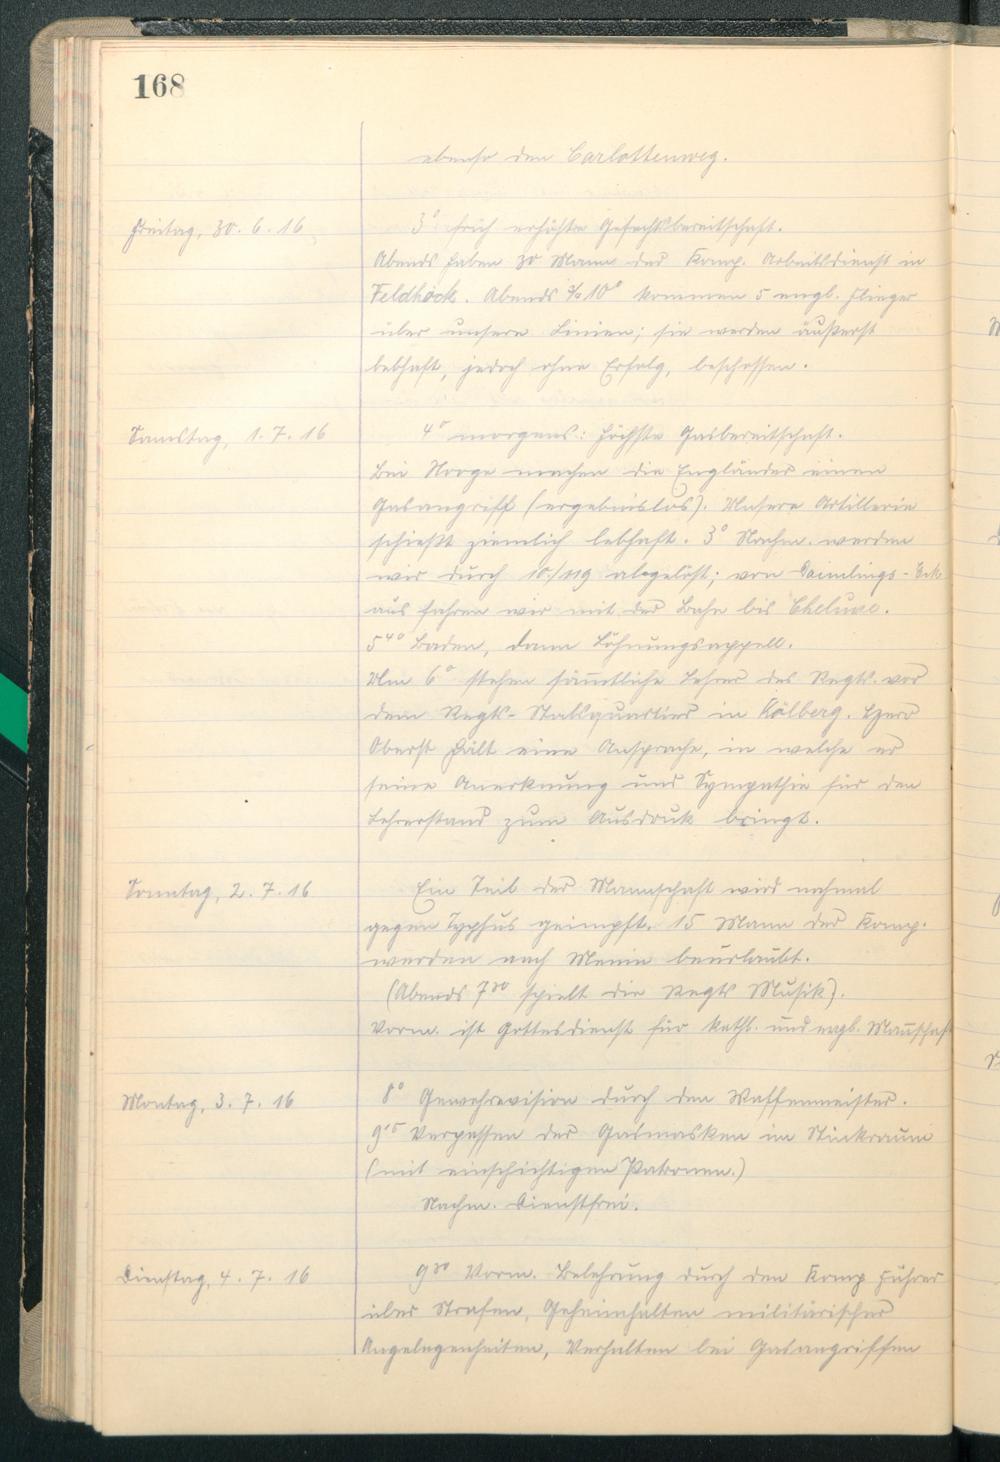 168
ebenso den Carlottenweg.
Freitag, 30. 6. 16
3° früh erhöhte Gefechtsbereitschaft.
Abends haben 30 Mann der Komp. Arbeitsdienst in
Feldhoek. Abends 10° kommen 5 engl. Flieger
über unsere Linien; sie werden äußerst
lebhaft, jedoch ohne Erfolg, beschossen.
Samstag, 1. 7. 16
4° morgens: höchste Gasbereitschaft.
Bei Hooge machen die Engländer einen
Gasangriff (ergebnislos). Unsere Artillerie
schießt ziemlich lebhaft. 3° Nachm. werden
wir durch 10./119 abgelöst; von Daimlings-Eck
aus fahren wir mit der Bahn bis Cheluve.
5⁴⁰ Baden, dann Löhnungsappell.
Um 6° stehen sämtliche Lehrer des Regts. vor
dem Regts-Stabsquartier in Kölberg. Herr
Oberst hält eine Ansprache, in welche er
seine Anerknung und Sympathie für den
Lehrerstand zum Ausdruk bringt.
Sonntag, 2. 7. 16
Ein Teil der Mannschaft wird nochmal
gegen Typhus geimpft. 15 Mann der Komp.
werden nach Menin beurlaubt.
(Abends 7³⁰ spielt die Regts Musik).
Vorm. ist Gottesdienst für kath. und evgl. Mannschaft
Montag, 3. 7. 16
8° Gewehrrevision durch den Waffenmeister.
9¹⁵ Verpassen der Gasmasken im Stinkraum
(mit einschichtigen Patronen.)
Nachm. Dienstfrei.
Dienstag, 4. 7. 16
9³⁰ Vorm. Belehrung durch den Komp Führer
über Strafen, Geheimhalten militärischer
Angelegenheiten, Verhalten bei Gasangriffen